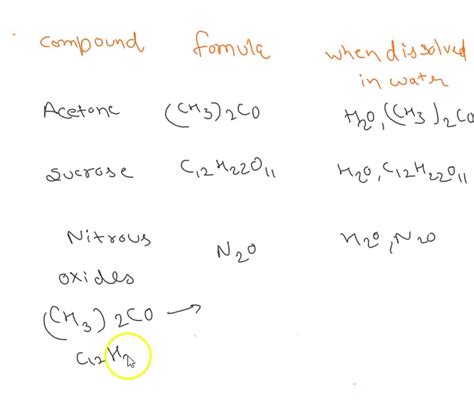 compound formula when dissolved
in water
Acetone (CH3)2CO H2O,(CH3)2CO
Sucrose C12H22O11 H2O,C12H22O11
Nitrous N2O H2O,N2O
oxides
(CH3)2CO →
C12H2